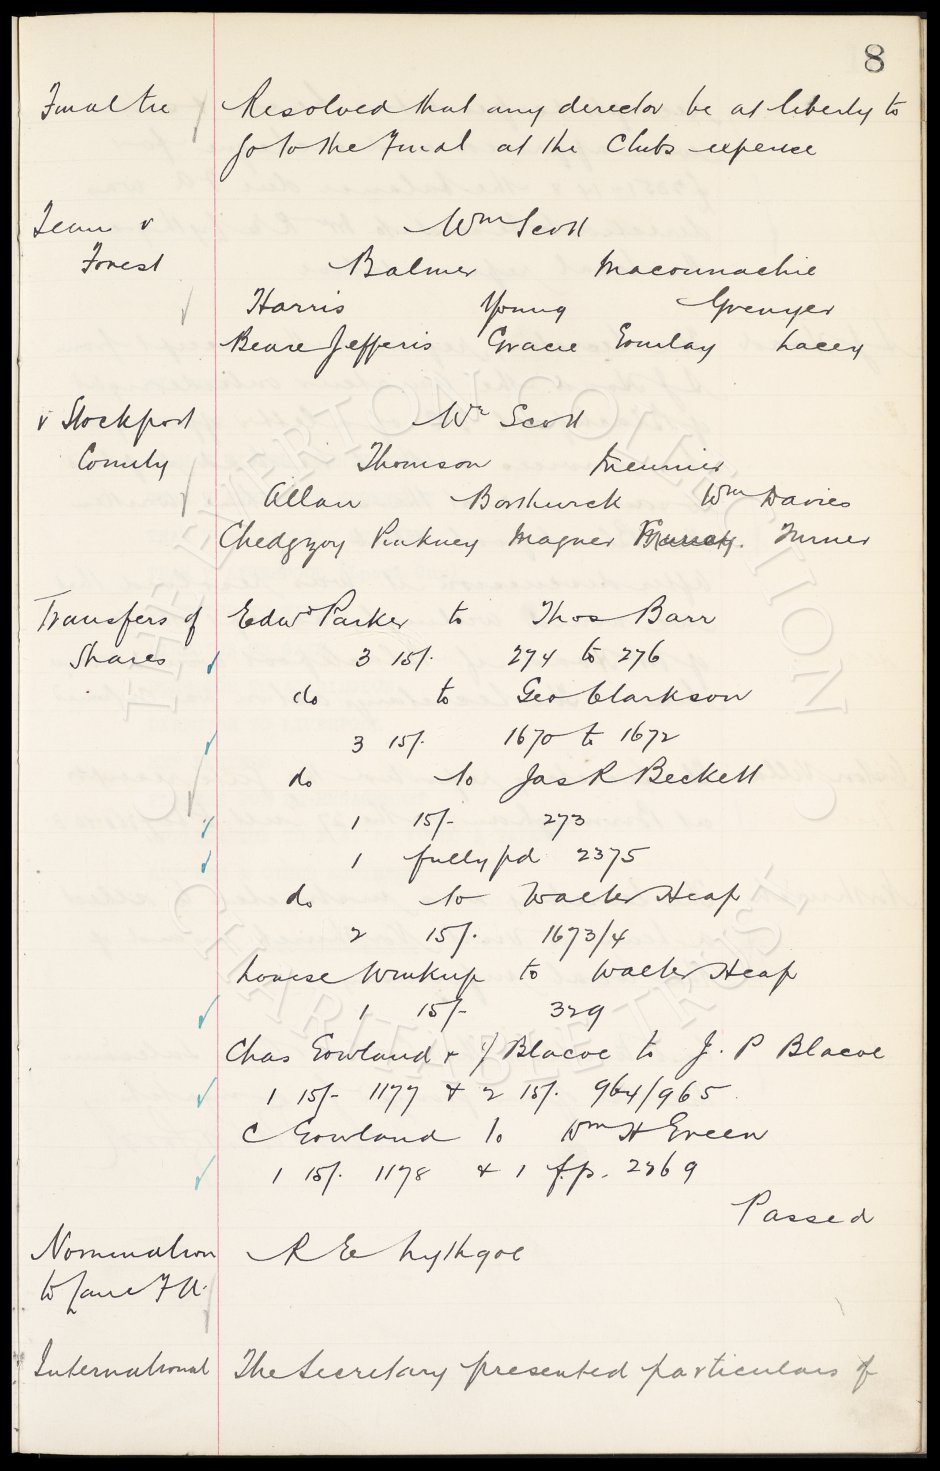 8
Final tie Resolved that any director be at liberty to
go to the Final at the Clubs expense
Team v Wm Scott
Forest Balmer Maconnachie
Harris Young Grenyer
Beare Jefferis Gracie Gourlay Lacey
v Stockport Wm Scott
County Thomson Meunier
Allan Borthwick Wm Davies
Chedgzoy Pinkney Magner Murray. Turner
Transfers of Edwd Parker to Thos Barr
Shares 3 15/- 274 to 276
do to Geo Clarkson
3 15/- 1670 to 1672
do to Jas R Beckett
1 15/- 273
1 fully pd 2375
do to Walter Heap
2 15/- 1673/4
Louise Wmkup to Walter Heap
1 15/- 329
Chas Gowland & J Blacoe to J. P Blacoe
1 15/- 1177 & 2 15/- 964/965
C Gowland to Wm H Green
1 15/- 1178 & 1 f.p. 2269
Passed
Nomination R E Lythgoe
to Lanc F A.
International The Secretary presented particulars of
THE EVERTON COLLECTION
CHARITABLE TRUST